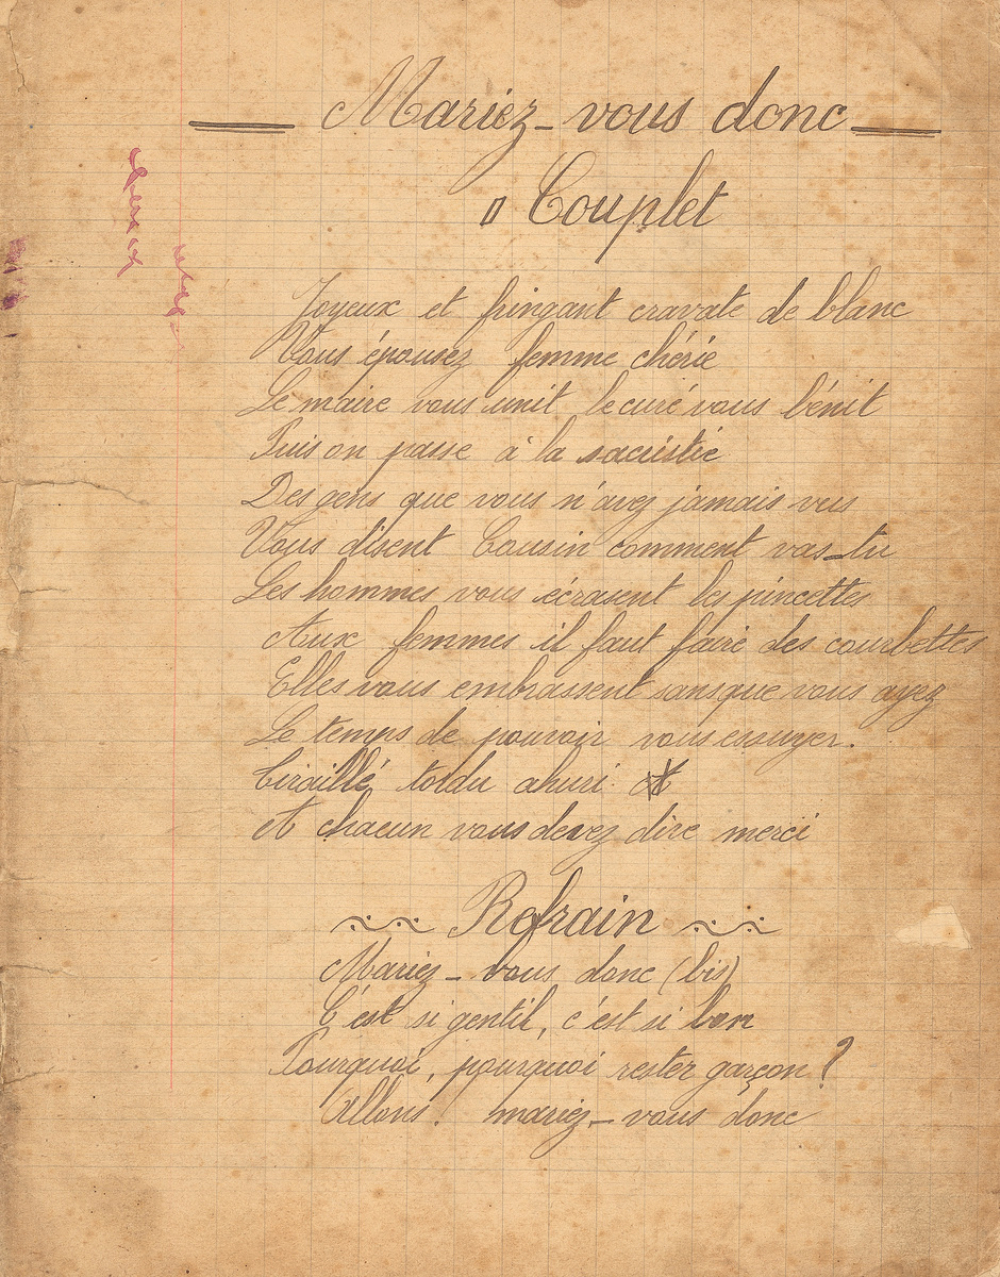 Mariez-vous donc
Couplet
Joyeux et fringant cravate de blanc
Vous épousez femme chérie
Le maire vous unit le curé vous bénit
Puis on passe à la sacristie
Des gens que vous n'avez jamais vus
Vous disent Cousin comment vas-tu
Les hommes vous écrasent les pincettes
Aux femmes il faut faire des courbettes
Elles vous embrassent sans que vous ayez
Le temps de pouvoir vous essuyer.
Tiraillé, tordu ahuri
Et chacun vous devez dire merci
Refrain
Mariez-vous donc (bis)
C'est si gentil, c'est si bon
Pourquoi, pourquoi rester garçon ?
Allons ! mariez-vous donc